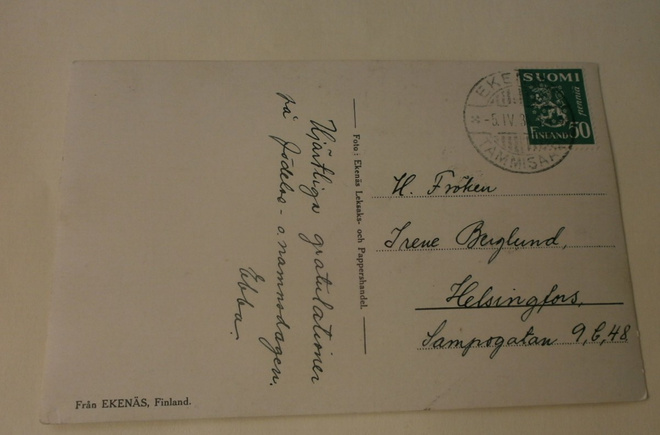 Hjärtliga gratulationer
på födelse- o. namnsdagen.
Ebba.
Foto: Ekenäs Leksaks- och Pappershandel.
EKE
-5.IV
TAMMISAARI
SUOMI
50 penniä
FINLAND
H. Fröken
Irene Berglund,
Helsingfors,
Sampogatan 9, C, 48
Från EKENÄS, Finland.